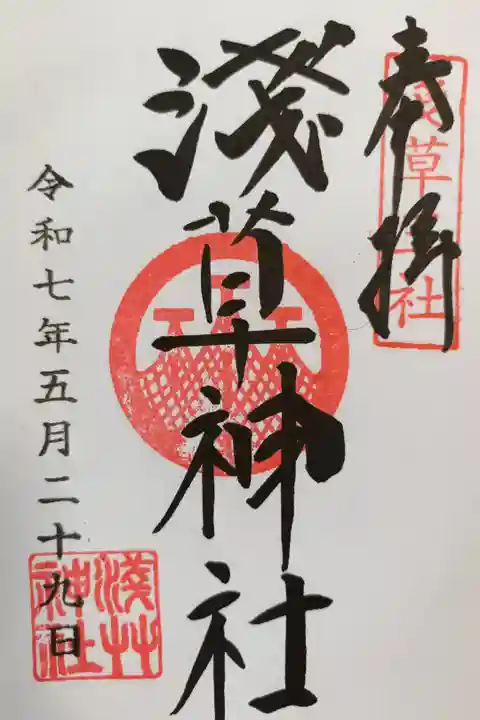 奉拝
淺草神社
淺草神社
令和七年五月二十九日
淺草神社